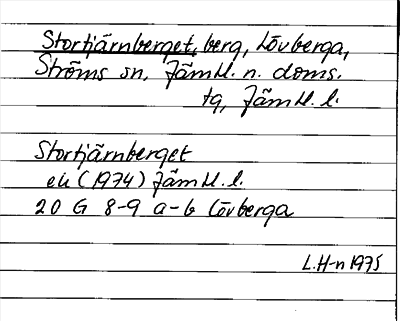 Stortjärnberget, berg, Lövberga,
Ströms sn, Jämtl. n. doms.
tg, Jämtl. l.
Stortjärnberget
ek (1974) Jämtl. l.
20 G 8-9 a-b Lövberga
L.H-n 1975